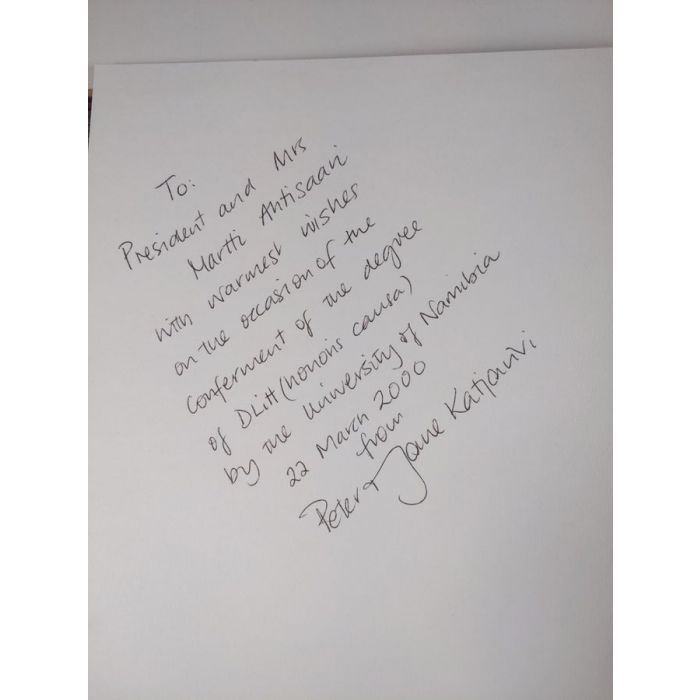 To:
President and Mrs
Martti Ahtisaari
with warmest wishes
on the occasion of the
conferment of the degree
of DLitt (honoris causa)
by the University of Namibia
22 March 2000
from
Peter & Jane Katjavivi